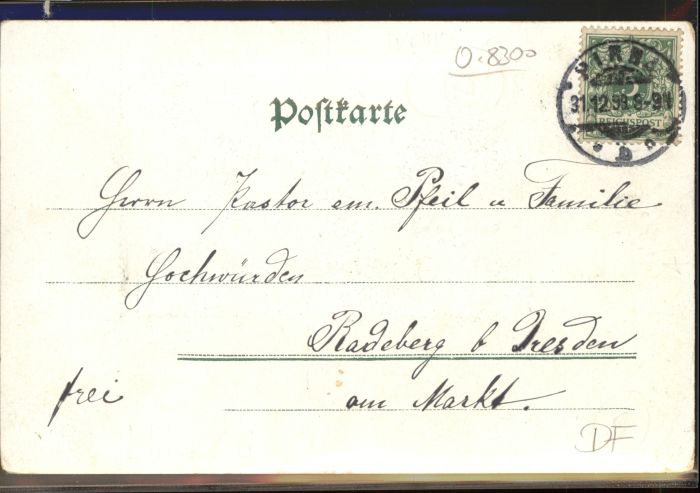 O-8300
Postkarte
PIRNA
31.12.98 8-9V
5
REICHSPOST
Herrn Pastor em. Pfeil u Familie
Hochwürden
Radeberg b Dresden
frei am Markt.
DF